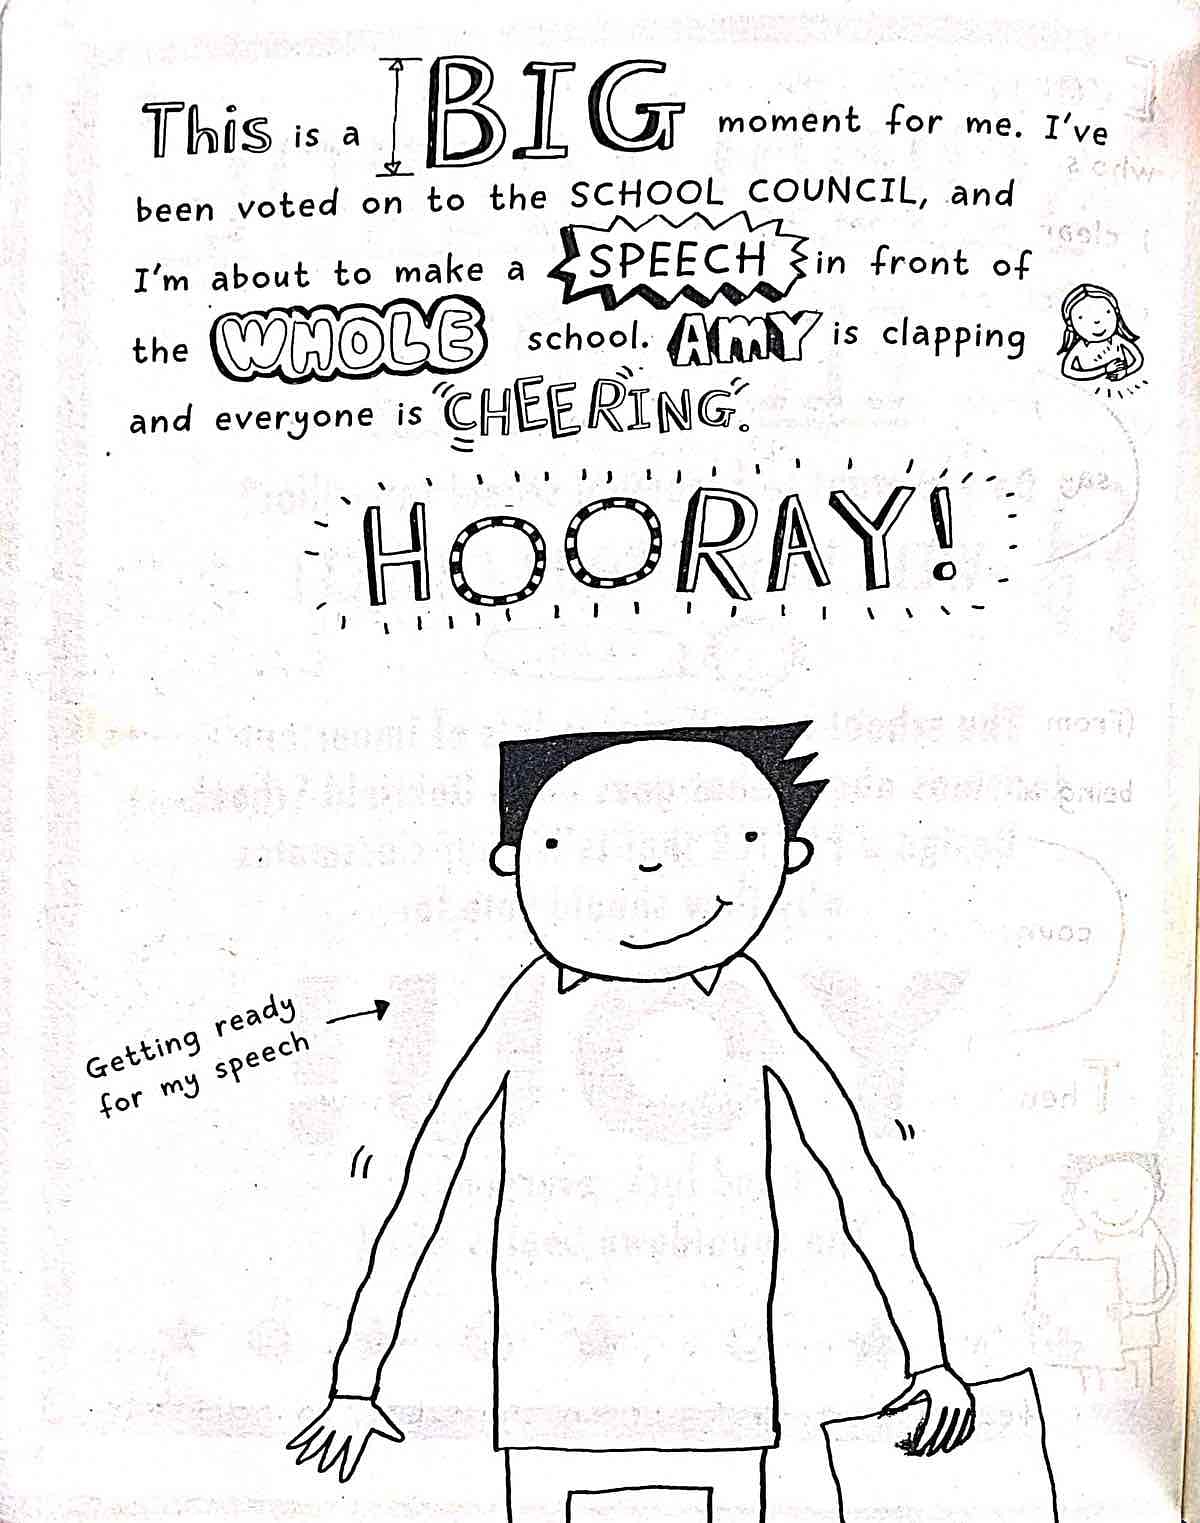 This is a BIG moment for me. I've
been voted on to the SCHOOL COUNCIL, and
I'm about to make a SPEECH in front of
the WHOLE school. AMY is clapping
and everyone is CHEERING.
HOORAY!
Getting ready
for my speech